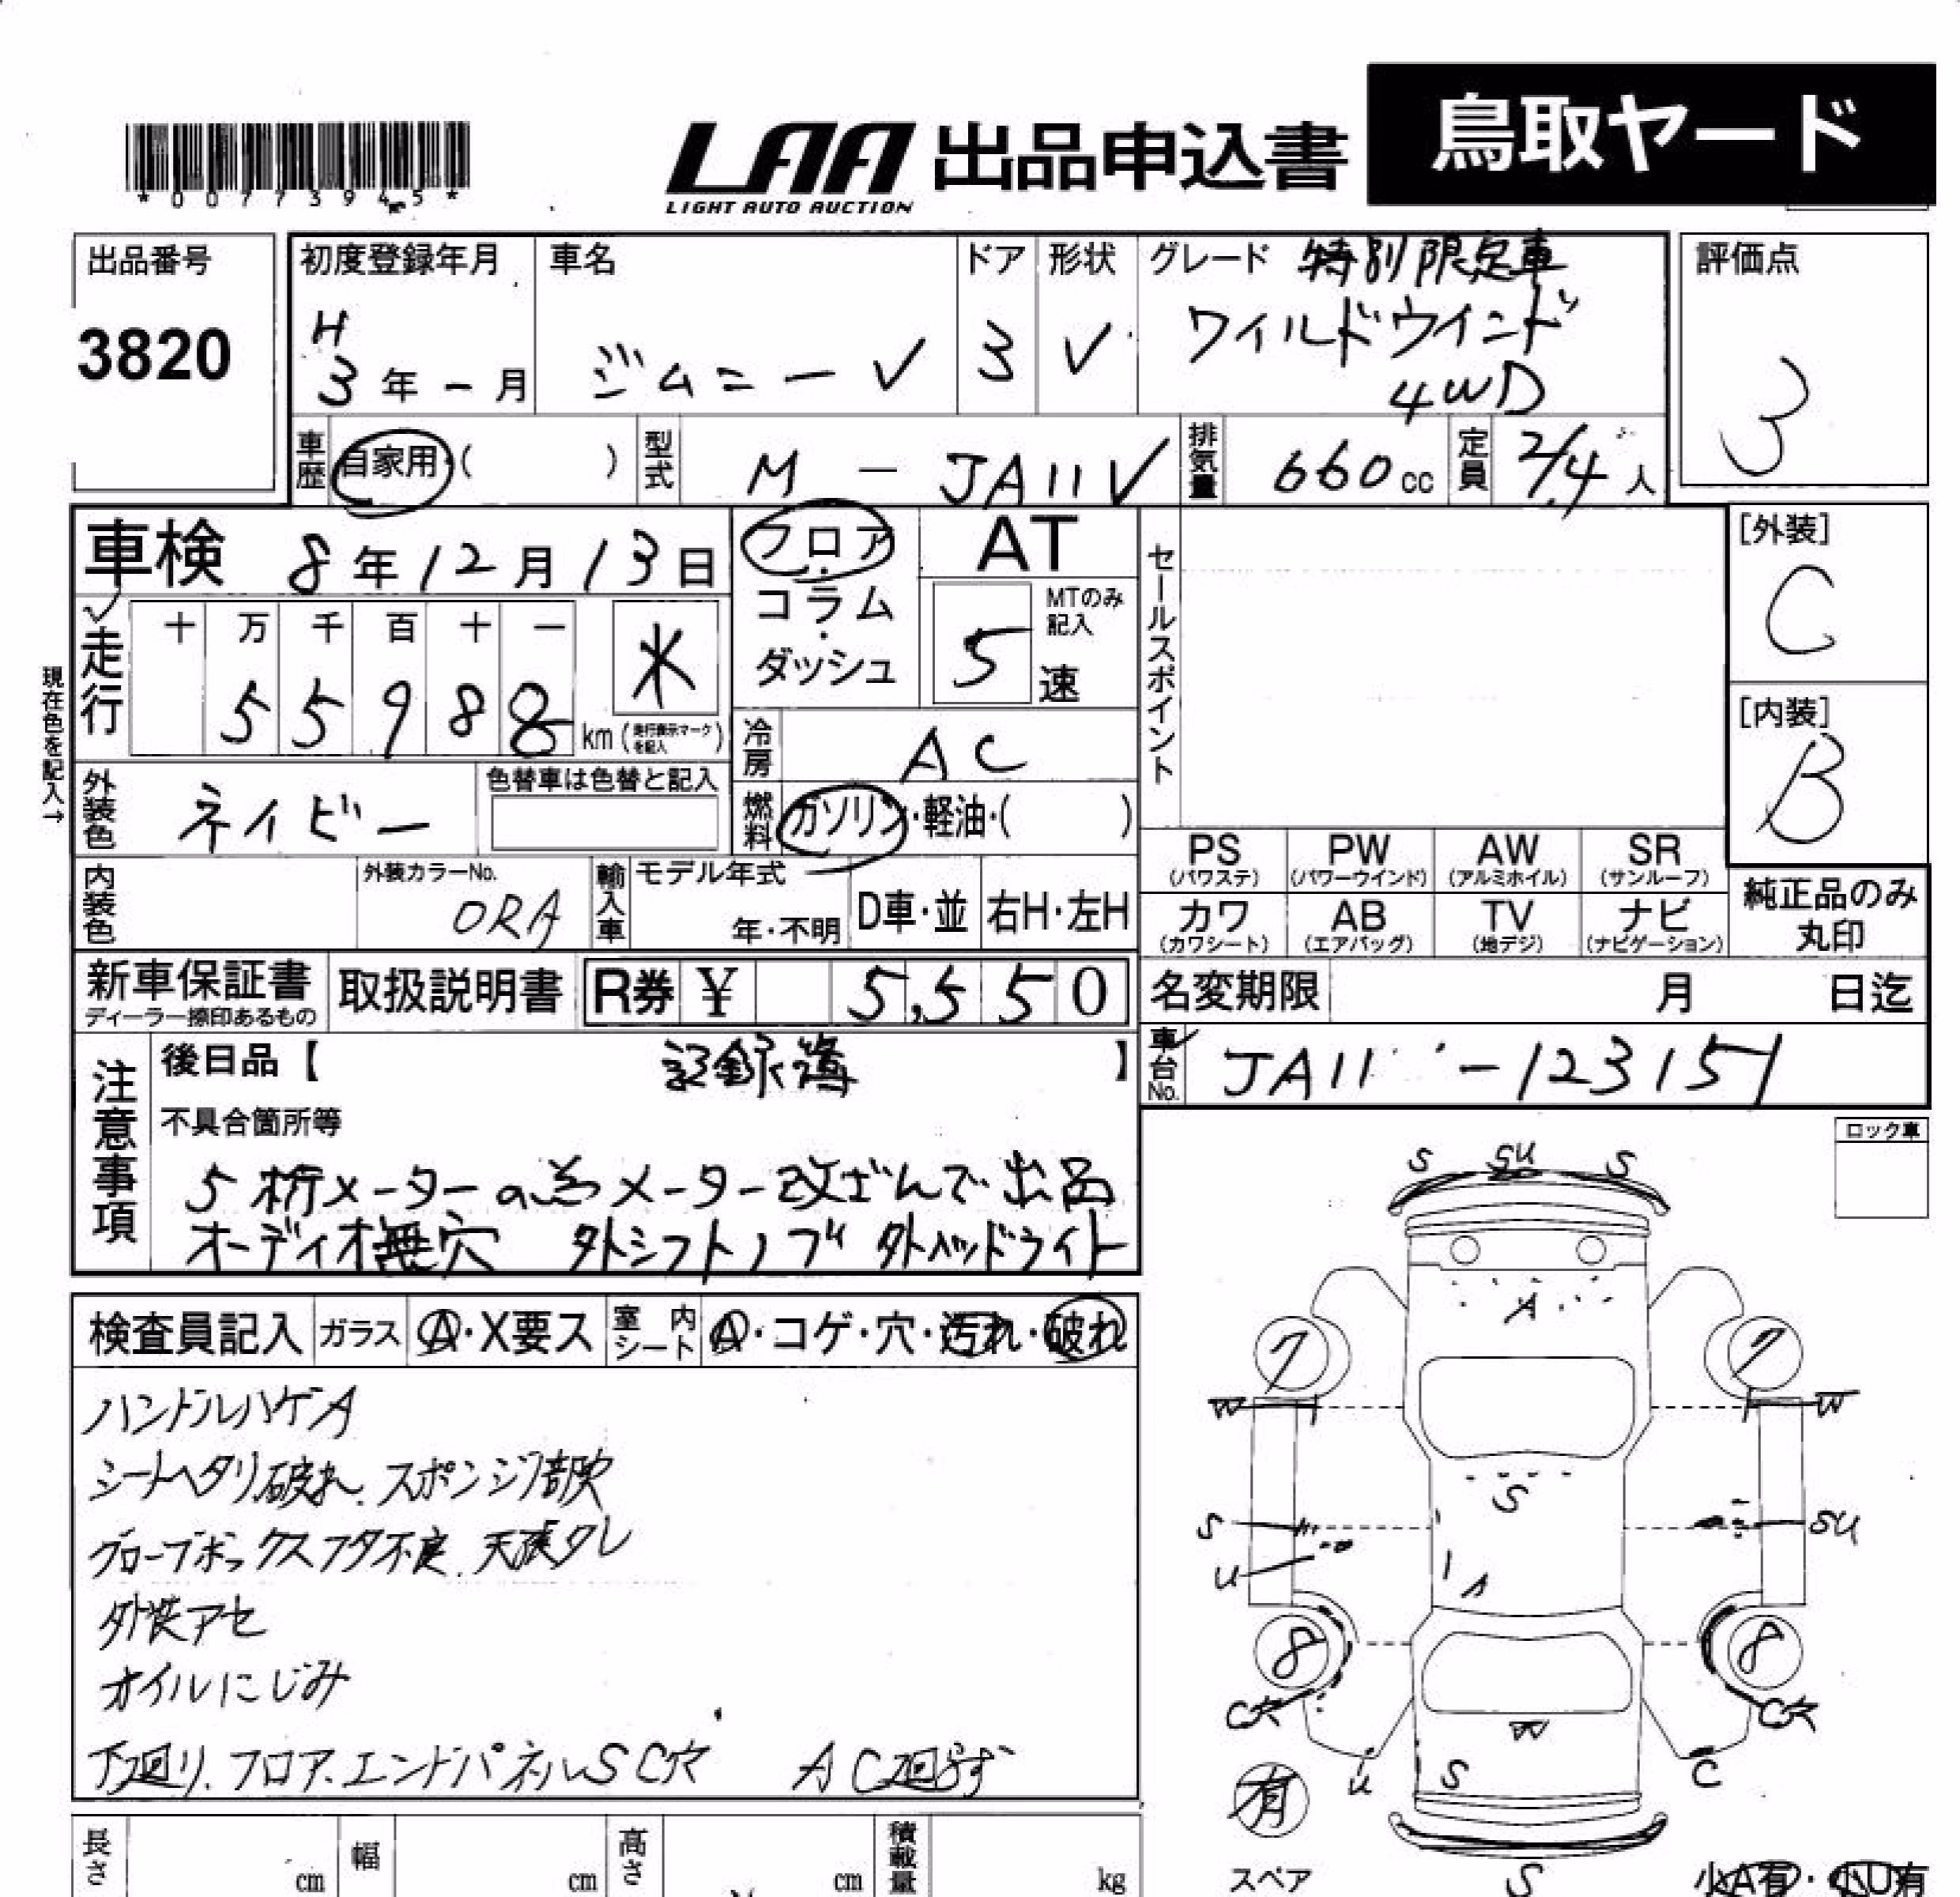 鳥取ヤード
LAA 出品申込書
LIGHT AUTO AUCTION
*0077394-5*
出品番号
3820
初度登録年月
H
3年-月
車名
ジムニー
ドア
3
形状
V
グレード 特別限定車
ワイルドウインド
4WD
評価点
3
車歴
自家用・( )
型式
M-JA11V
排気量
660cc
定員
2/4人
車検 8年12月13日
フロア・コラム・ダッシュ
AT
5速
MTのみ記入
セールスポイント
[外装]
C
[内装]
B
現在色を記入→
走行
十 万 千 百 十 一
5 5 9 8 8 km
(走行表示マークを記入)
*
冷房
AC
外装色
ネイビー
色替車は色替と記入
燃料
ガソリン・軽油・( )
内装色
外装カラーNo.
0RA
輸入車
モデル年式
年・不明
D車・並
右H・左H
PS
(パワステ)
PW
(パワーウインド)
AW
(アルミホイル)
SR
(サンルーフ)
カワ
(カワシート)
AB
(エアバッグ)
TV
(地デジ)
ナビ
(ナビゲーション)
純正品のみ
丸印
新車保証書
ディーラー捺印あるもの
取扱説明書
R券 ¥ 5,550
名変期限 月 日迄
車台No.
JA11-123151
注意事項
後日品【 記録簿 】
不具合箇所等
5桁メーターの為メーター改ざんで出品
オーディオ無穴 外シフトノブ 外ヘッドライト
ロック車
検査員記入
ガラス
A・X要ス
室内シート
A・コゲ・穴・汚れ・破れ
ハンドルハゲA
シートヘタリ.破れ.スポンジ1部欠
グローブボックスフタ不良.天張タレ
外装アセ
オイルにじみ
下廻り.フロア.エンドパネルSC穴 AC回らず
S SU S
A
7 7
W W
S
S SU
U
A
8 8
C穴 C穴
W
U S C
有
スペア
S
小A有・小U有
長さ cm
幅 cm
高さ cm
積載量 kg